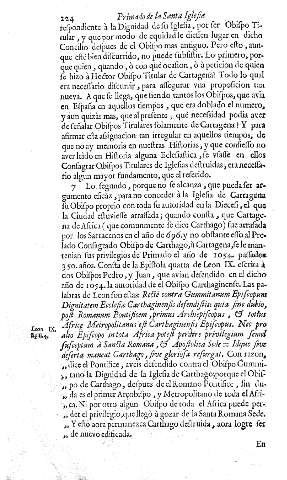 224 Primado de la Santa Iglesia
respondiente à la Dignidad de su Iglesia, por ser Obispo Ti-
tular, y que por modo de equidad le diessen lugar en dicho
Concilio despues de el Obispo mas antiguo. Pero esto, aun-
que està bien discurrido, no puede subsistir. Lo primero, por-
que quien, quando, ò con què ocasion, ò à peticion de quien
se hizo à Hector Obispo Titular de Cartagena? Todo lo qual
era necessario discurrir, para assegurar vna proposicion tan
nueva. A que se llega, que siendo tantos los Obispos, que avia
en España en aquellos tiempos, que era doblado el numero,
y aun quizàs mas, que al presente, què necessidad podia aver
de señalar Obispos Titulares solamente de Cartagena? Y para
afirmar esta assignacion tan irregular en aquellos tiempos, de
que no ay memoria en nuestras Historias, y que confiesso no
aver leìdo en Historia alguna Eclesiastica, se viesse en ellos
Consagrar Obispos Titulares de Iglesias destruidas, era necessa-
rio algun mayor fundamento, que el referido.
7 Lo segundo, porque no se alcança, que pueda ser ar-
gumento eficaz, para no conceder à la Iglesia de Cartagena
su Obispo proprio con toda su autoridad en la Diocesi, el que
la Ciudad estuviesse arrasada; quando consta, que Cartage-
na de Africa (que comunmente se dice Carthago) fue arrasada
por los Sarracenos en el año de 696. y no obstante esto al Pre-
lado Consagrado Obispo de Carthago, ù Cartagena, se le man-
tenian sus privilegios de Primado el año de 1054. passados
350. años. Consta de la Epistola quarta de Leon IX. escrita à
dos Obispos Pedro, y Juan, que avian defendido en el dicho
año de 1054. la autoridad de el Obispo Carthaginense. Las pa-
labras de Leon son estas: Restè contra Gummitanum Episcopum
Dignitatem Ecclesiæ Carthaginensis defendistis; quia sine dubio,
post Romanum Pontificem, primus Archiepiscopus, & totius
Africæ Metropolitanus est Carthaginensis Episcopus. Nec pro
alio Episcopo intota Africa potest perdere privilegium semel
susceptum à Sancta Romana, & Apostolica Sede = Idque sive
deserta maneat Carthago, sive gloriosa resurgat. Con razon,
dice el Pontifice, aveis defendido contra el Obispo Gummi-
tano la Dignidad de la Iglesia de Carthago; porque el Obis-
po de Carthago, despues de el Romano Pontifice, sin du-
da es el primer Arçobispo, y Metropolitano de toda el Afri-
ca. Ni por otro algun Obispo de toda el Africa puede per-
der el privilegio, que llegò à gozar de la Santa Romana Sede.
Y esto aora permanezca Carthago destruida, aora logre ser
de nuevo edificada.
En
Leon IX.